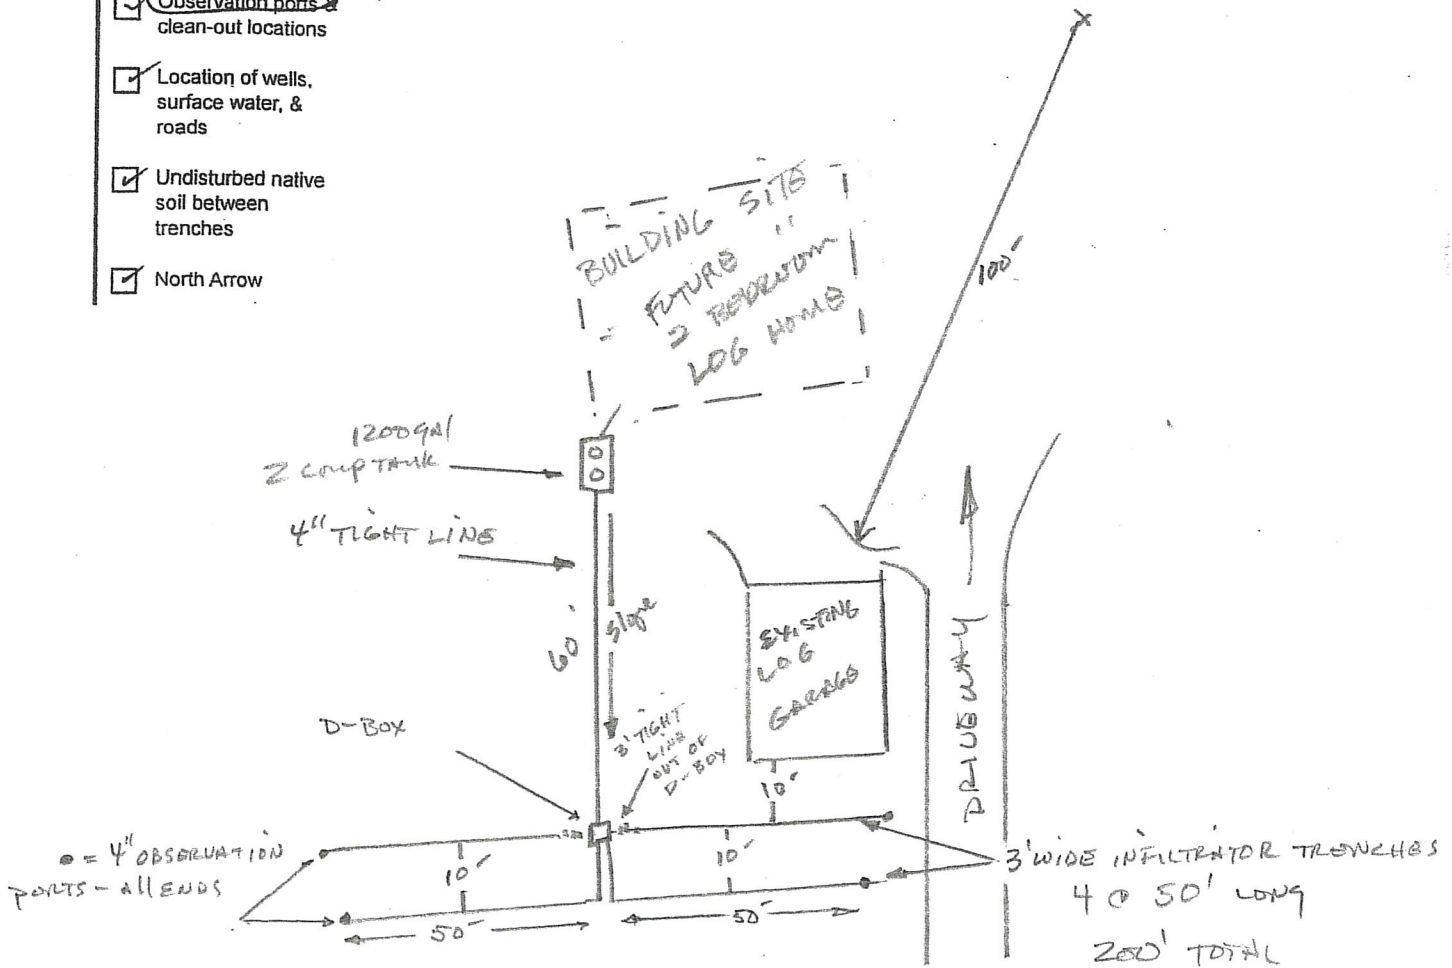 Observation ports &
clean-out locations
Location of wells,
surface water, &
roads
Undisturbed native
soil between
trenches
North Arrow
BUILDING SITE
FUTURE
2 BEDROOM
LOG HOME
100'
1200 gal
2 comp TANK
4" TIGHT LINE
60'
slope
EXISTING
LOG
GARAGE
DRIVEWAY
D-BOX
3' TIGHT
LINE
OUT OF
D-BOX
10'
● = 4" OBSERVATION
PORTS - All ENDS
10'
10'
50'
50'
3' WIDE INFILTRATOR TRENCHES
4 @ 50' LONG
200' TOTAL